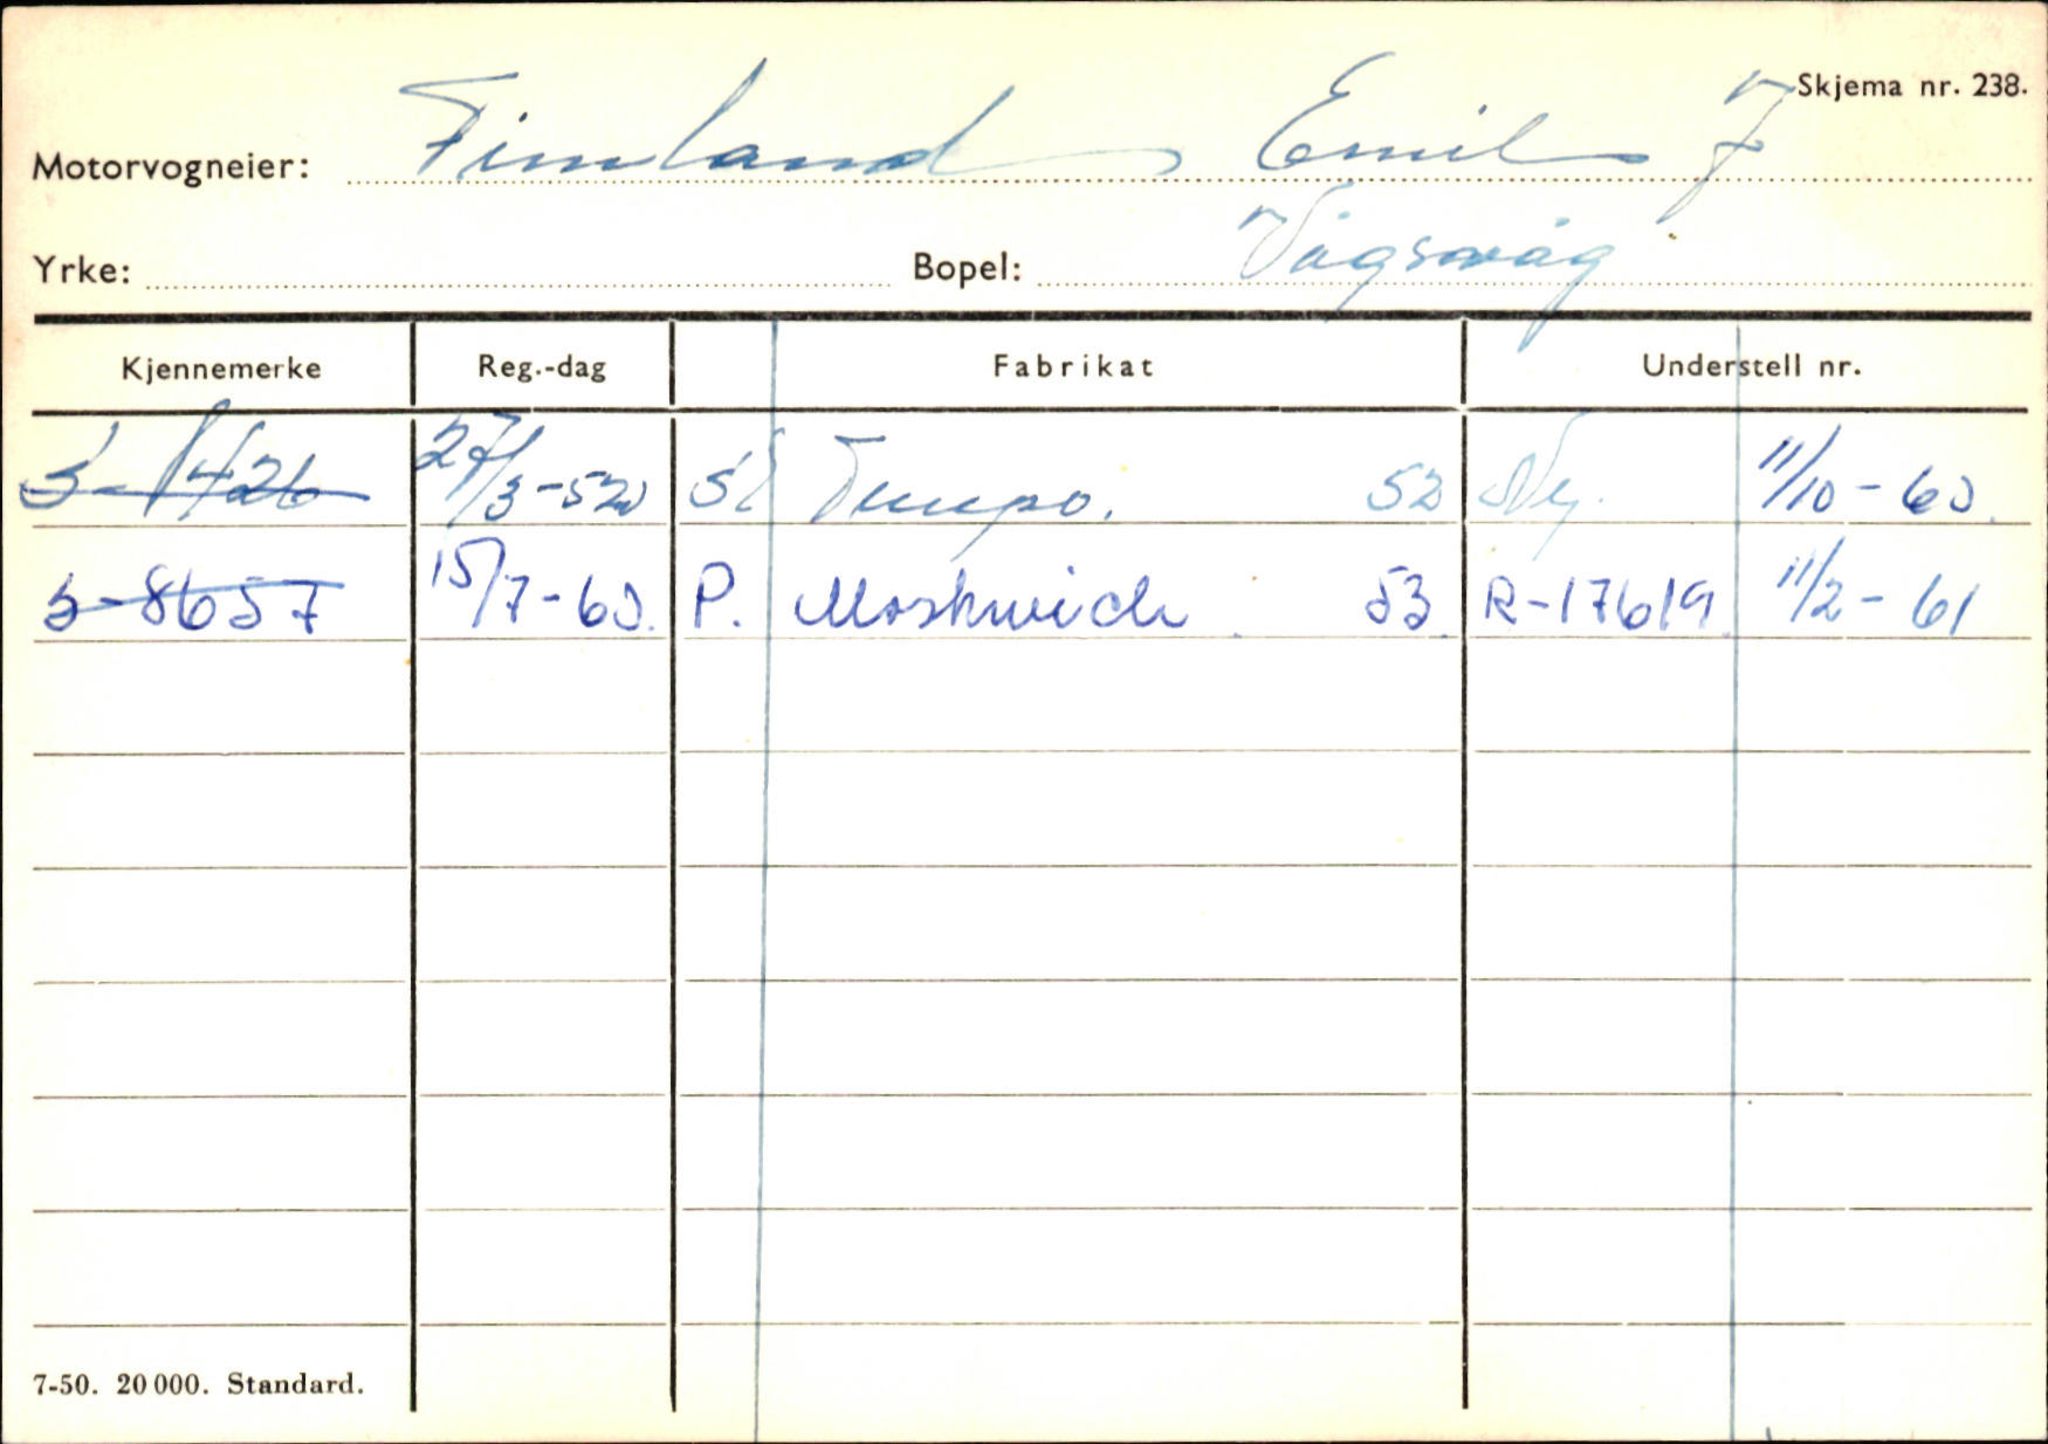 Skjema nr. 238.
Motorvogneier: Fimland Emil J
Yrke: Bopel: Vågsvåg
Kjennemerke Reg.-dag Fabrikat Understell nr.
S-1426 27/3-52 Tempo. 52 Ny. 11/10-60.
S-8657 15/7-60. P. Moskwich. 53. R-17619. 11/2-61
7-50. 20 000. Standard.